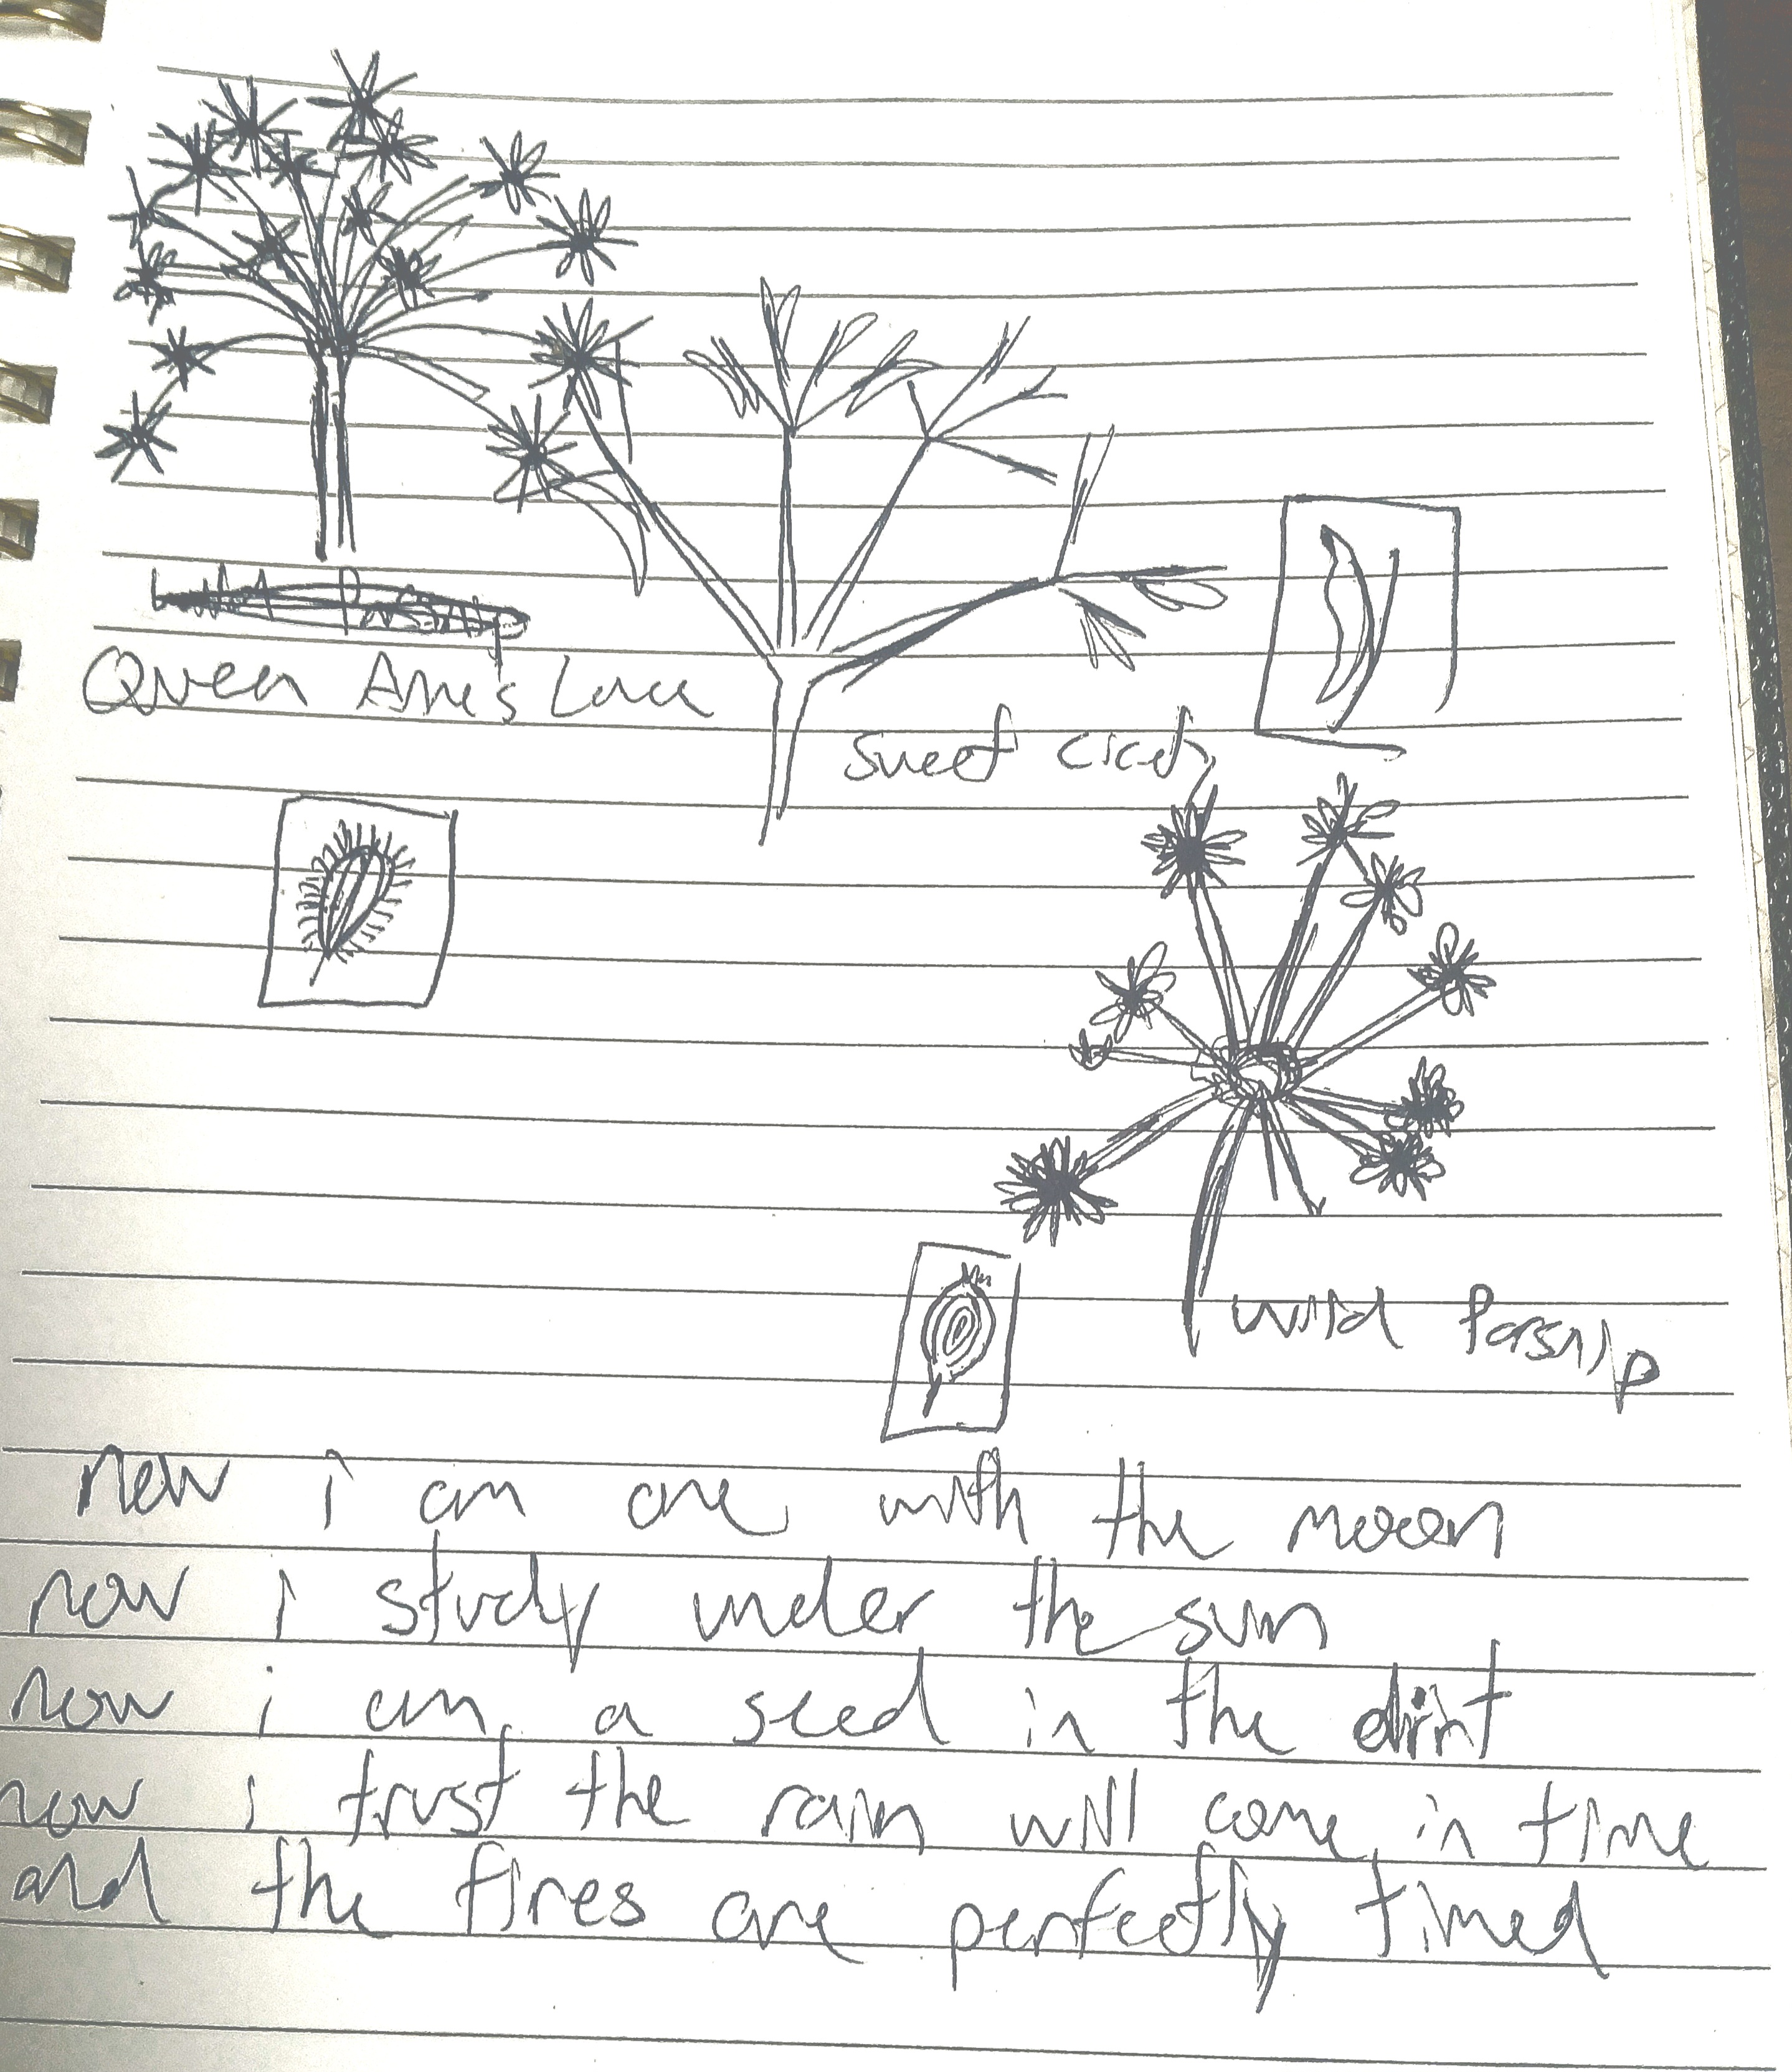 Wild Parsnip
Queen Anne's Lace
sweet cicely
wild Parsnip
now i am one with the moon
now i study under the sun
now i am a seed in the dirt
now i trust the rain will come in time
and the fires are perfectly timed